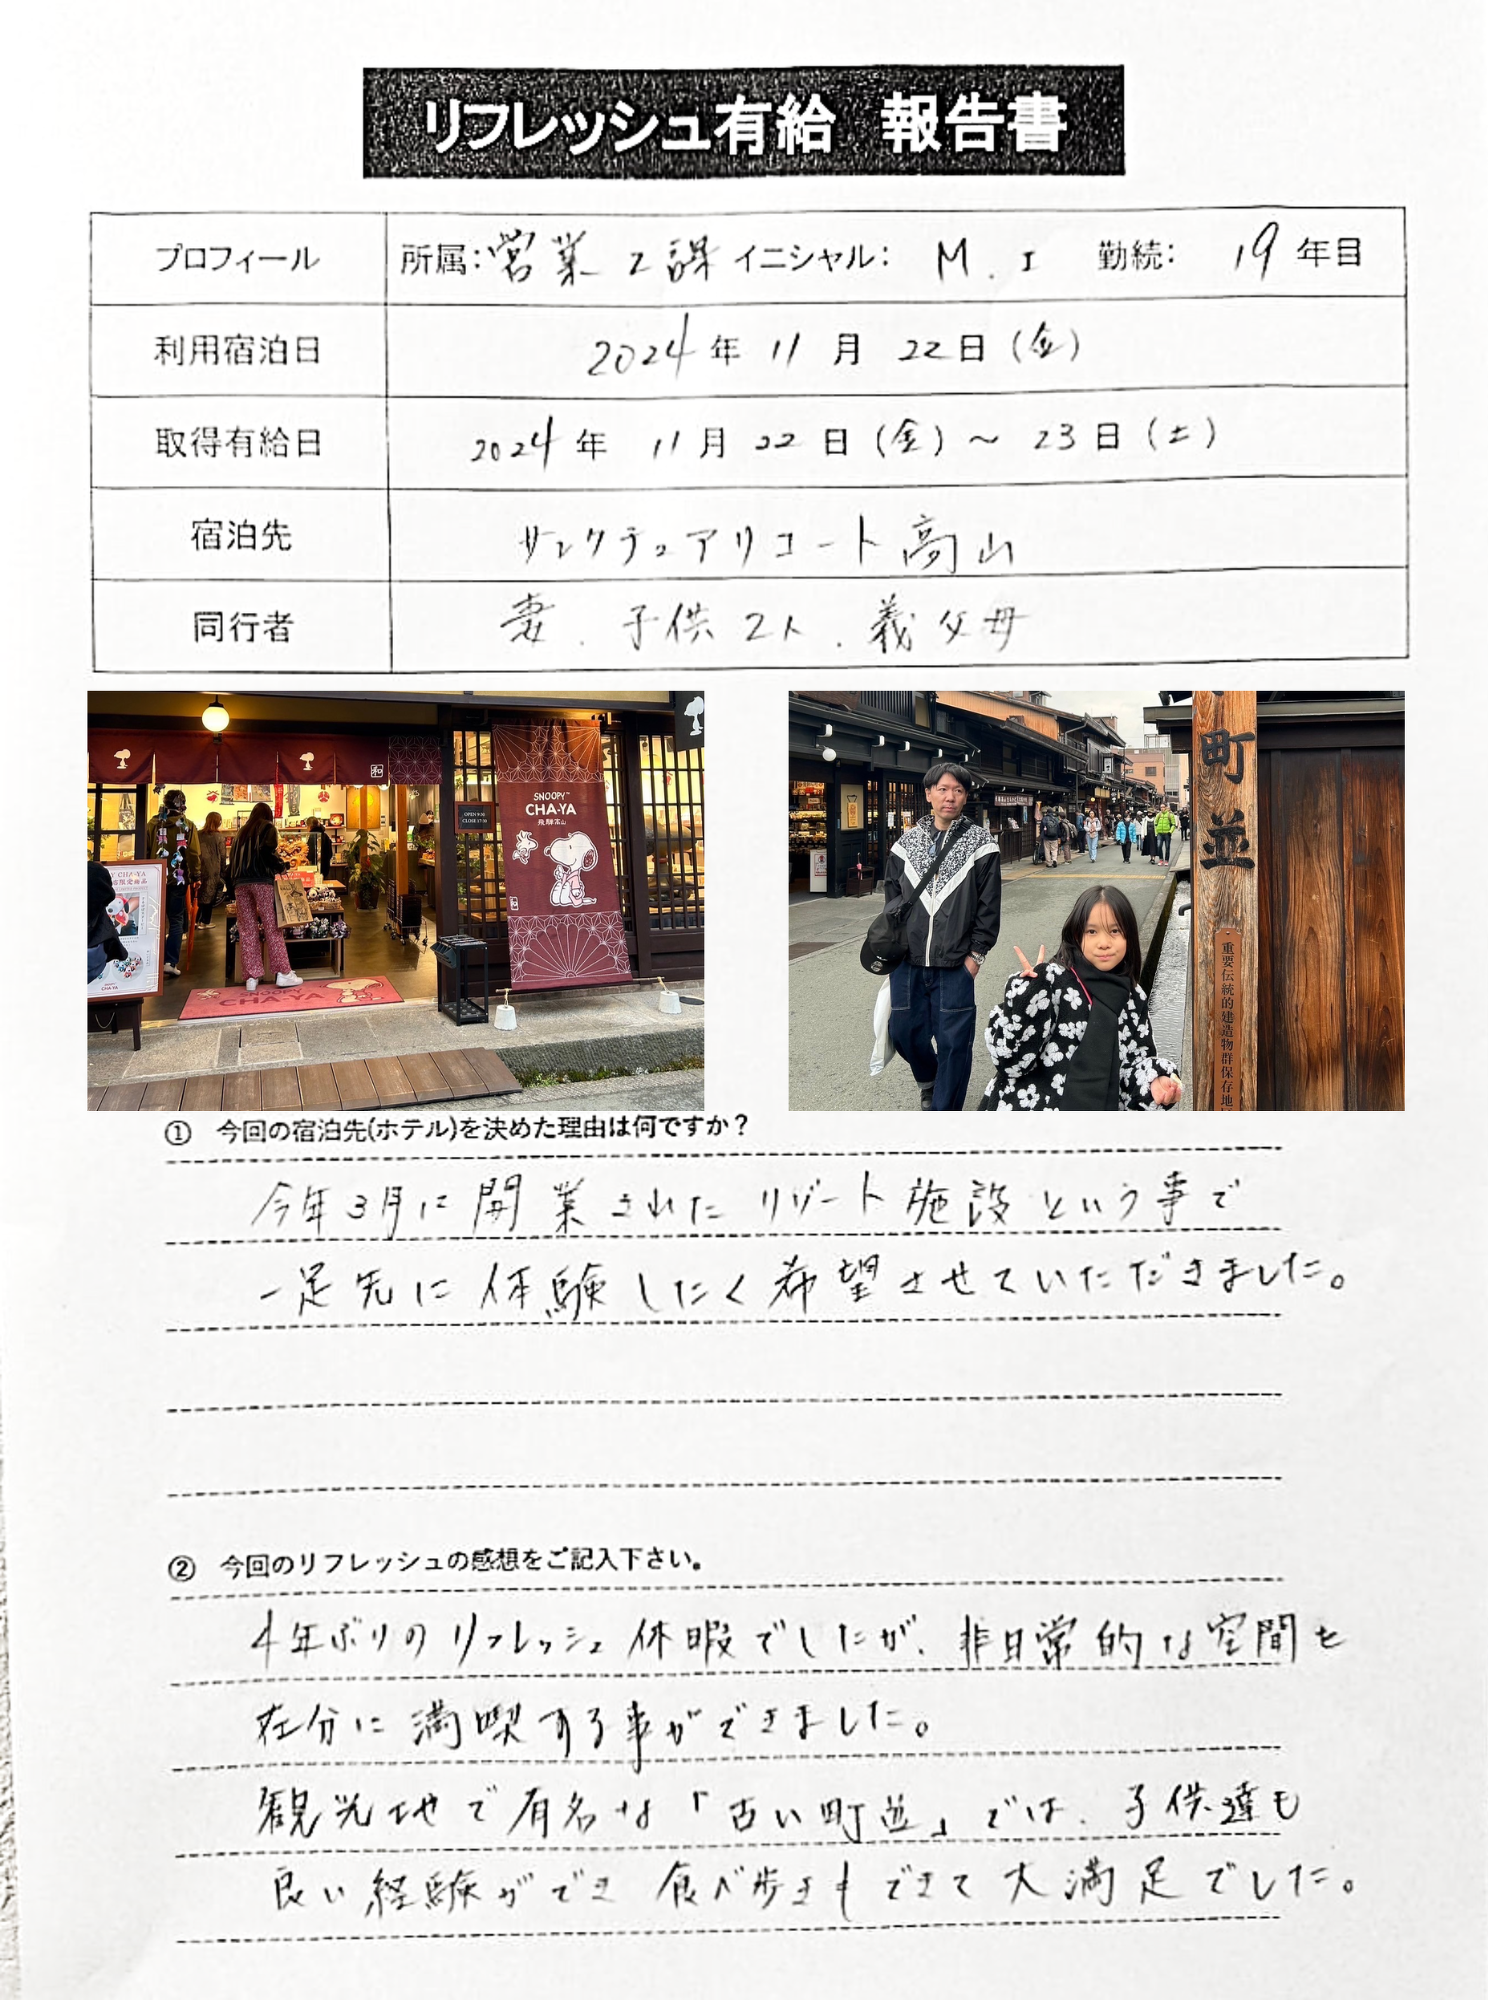 リフレッシュ有給 報告書
プロフィール 所属：営業2課 イニシャル： M.I 勤続： 19年目
利用宿泊日 2024年 11月 22日（金）
取得有給日 2024年 11月 22日（金）～ 23日（土）
宿泊先 サンクチュアリコート高山
同行者 妻．子供2人．義父母
SNOOPY™
CHA-YA
飛騨高山
和
OPEN 9:30
CLOSE 17:00
Y CHA-YA
CHA-YA
SNOOPY
CHA-YA
町並
重要伝統的建造物群保存地
① 今回の宿泊先(ホテル)を決めた理由は何ですか？
今年3月に開業されたリゾート施設という事で
一足先に体験したく希望させていただきました。
② 今回のリフレッシュの感想をご記入下さい。
4年ぶりのリフレッシュ休暇でしたが、非日常的な空間を
存分に満喫する事ができました。
観光地で有名な「古い町並」では、子供達も
良い経験ができ 食べ歩きもできて大満足でした。